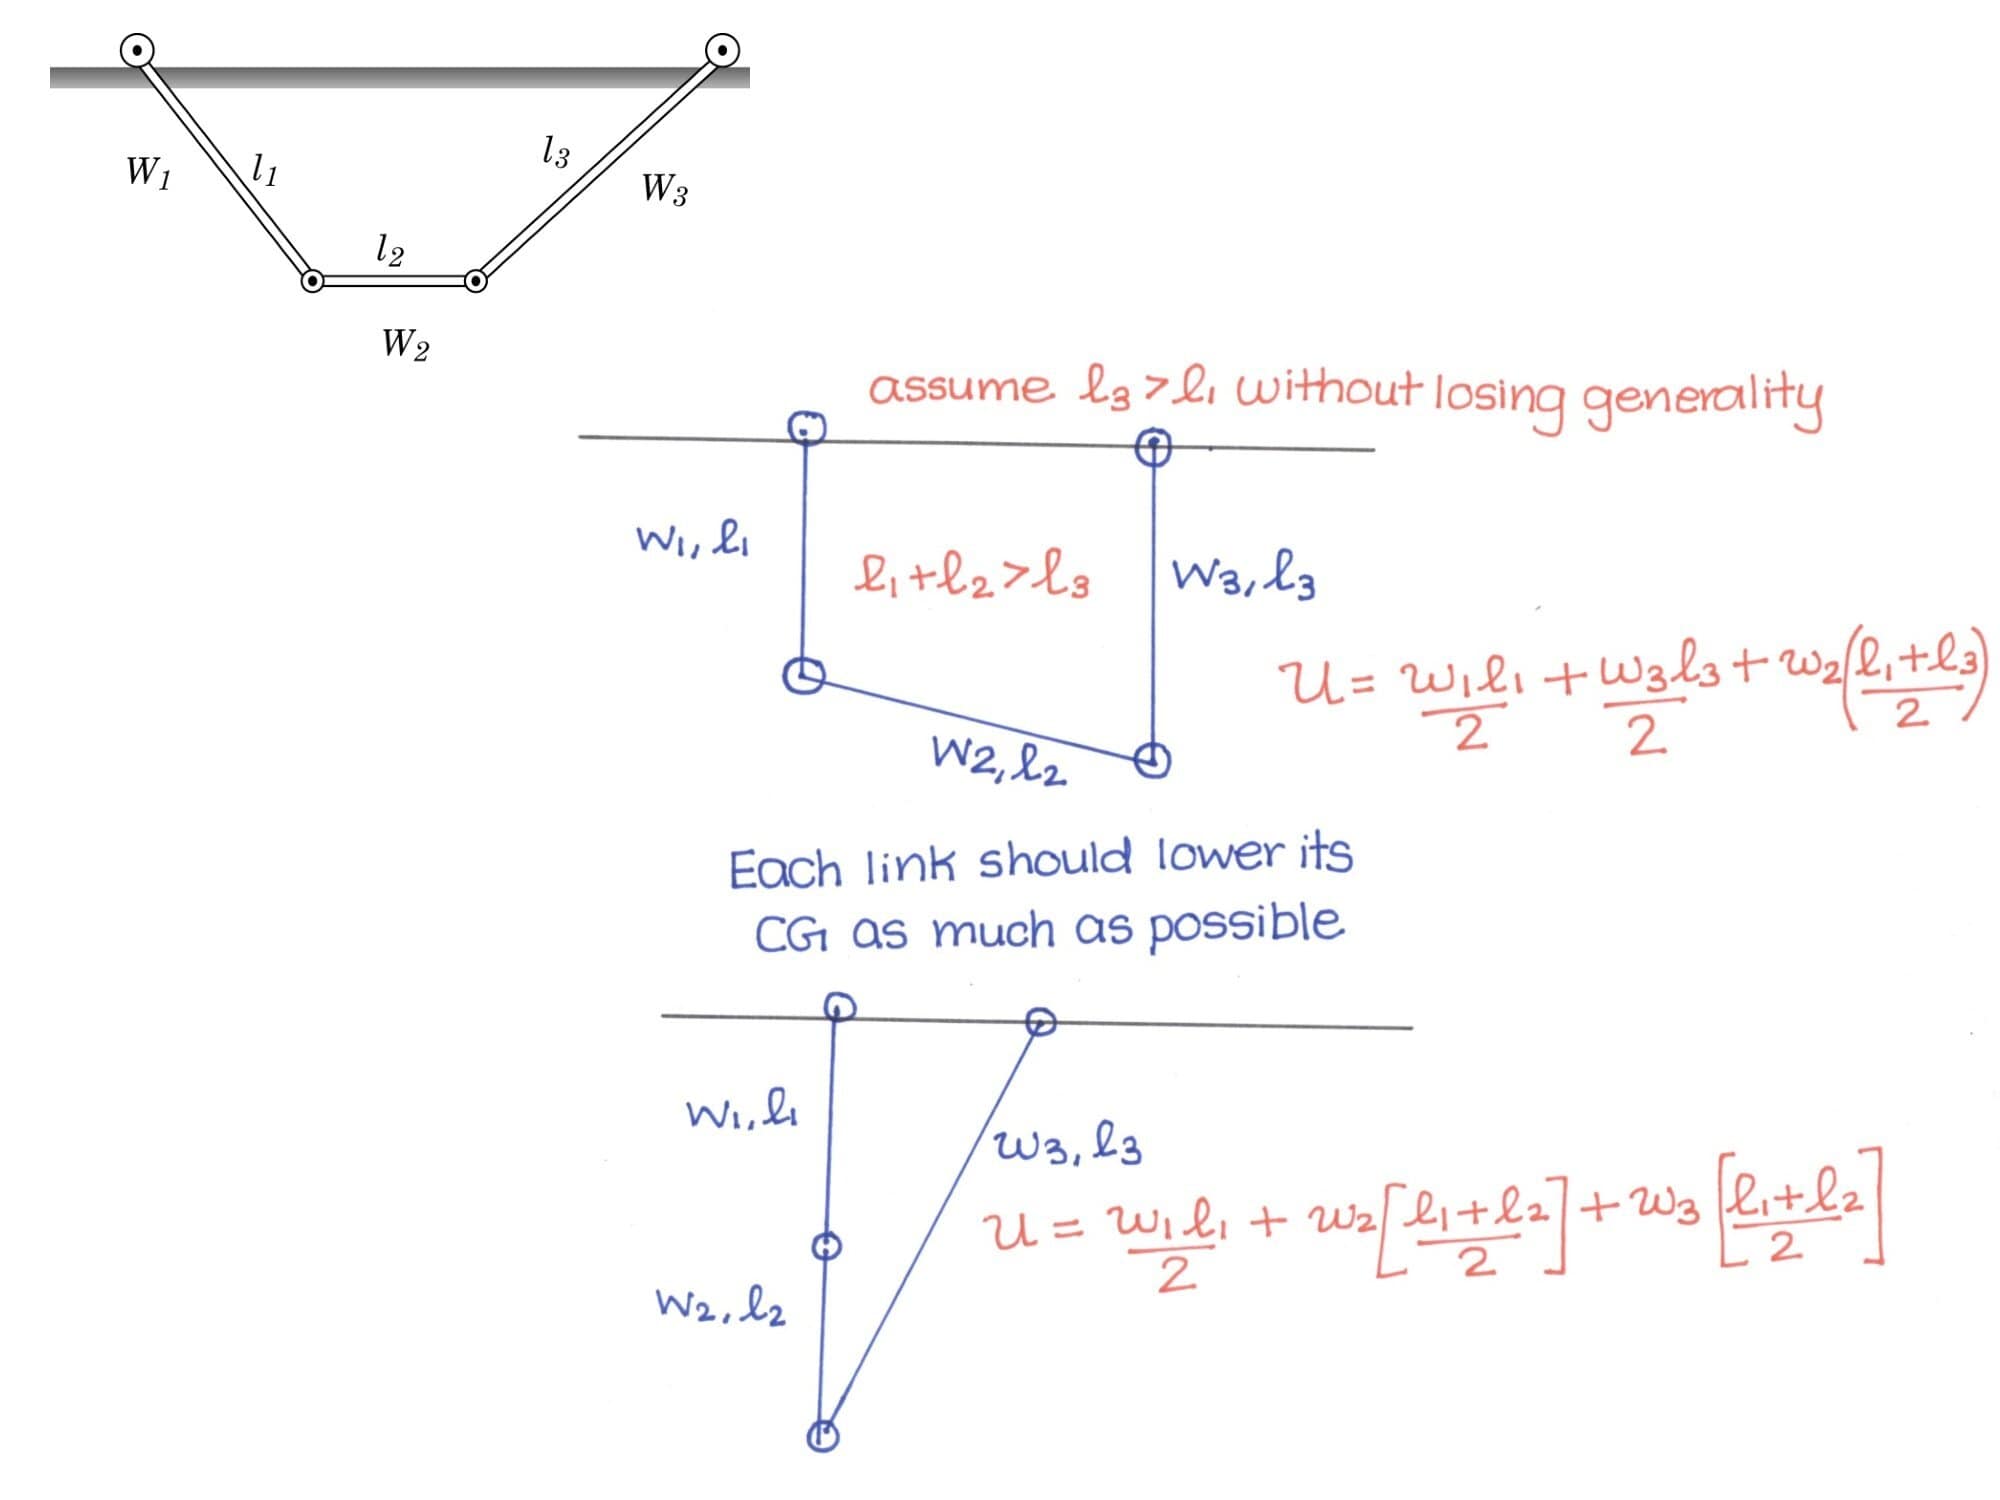 l1
l3
W1
W3
l2
W2
assume l3 > l1 without losing generality
w1, l1
l1 + l2 > l3
w3, l3
U = w1l1/2 + w3l3/2 + w2(l1+l3/2)
w2, l2
Each link should lower its
CG as much as possible
w1, l1
w3, l3
U = w1l1/2 + w2[l1+l2/2] + w3[l1+l2/2]
w2, l2